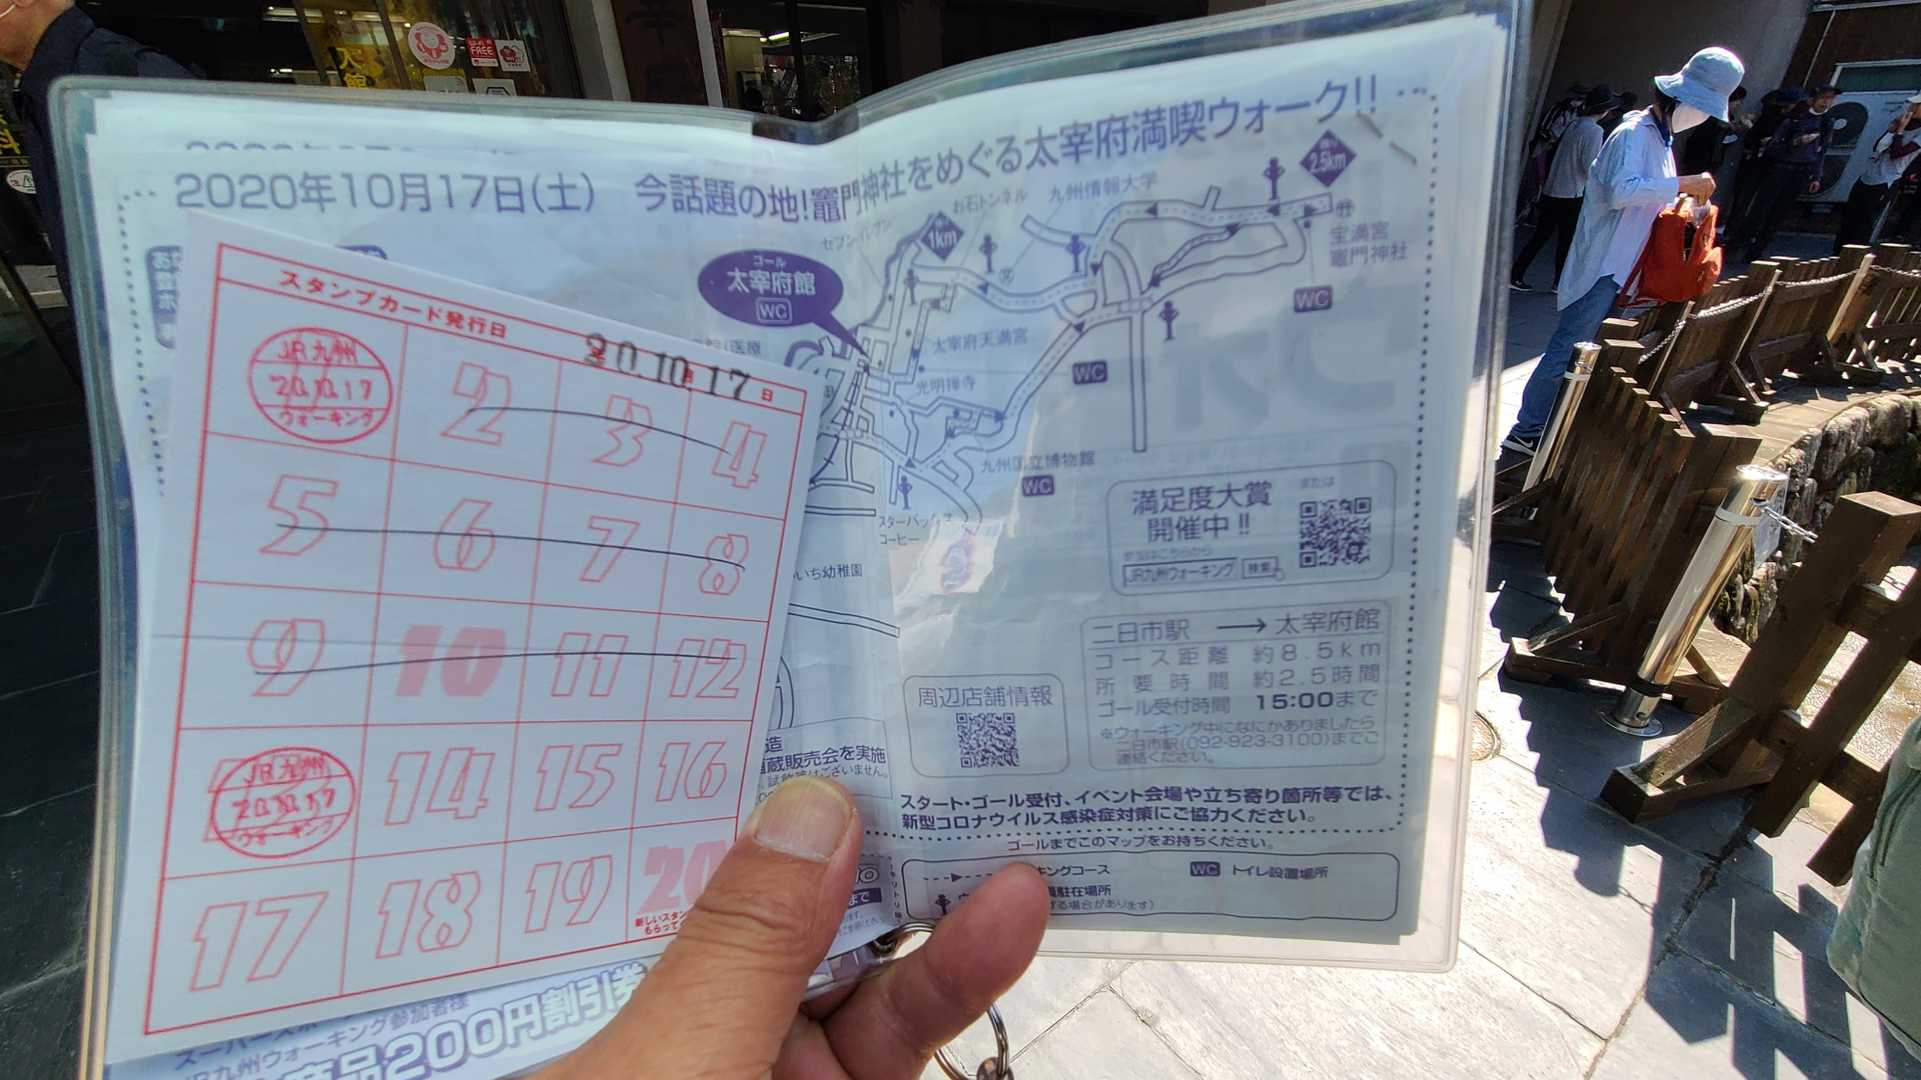 FREE
2020年10月17日(土)
今話題の地!竈門神社をめぐる太宰府満喫ウォーク!!
スタンプカード発行日
20.10.17日
JR九州
20.10.17
ウォーキング
2 3 4
5 6 7 8
9 10 11 12
JR九州
20.10.17
ウォーキング
14 15 16
17 18 19 20
セブン-イレブン
お石トンネル
九州情報大学
1km
2.5km
宝満宮
竈門神社
WC
ゴール
太宰府館
WC
太宰府天満宮
WC
光明禅寺
九州国立博物館
WC
スターバックス
コーヒー
いち幼稚園
満足度大賞
開催中!!
または
参加はこちらから
JR九州ウォーキング 検索
二日市駅 → 太宰府館
コース距離 約8.5km
所要時間 約2.5時間
ゴール受付時間 15:00まで
※ウォーキング中になにかありましたら
二日市駅(092-923-3100)までご
連絡ください。
周辺店舗情報
蔵販売会を実施
はございません。
スタート・ゴール受付、イベント会場や立ち寄り箇所等では、
新型コロナウイルス感染症対策にご協力ください。
ゴールまでこのマップをお持ちください。
キングコース
WC トイレ設置場所
駐在場所
する場合があります)
JR九州ウォーキング参加者様
商品200円割引券